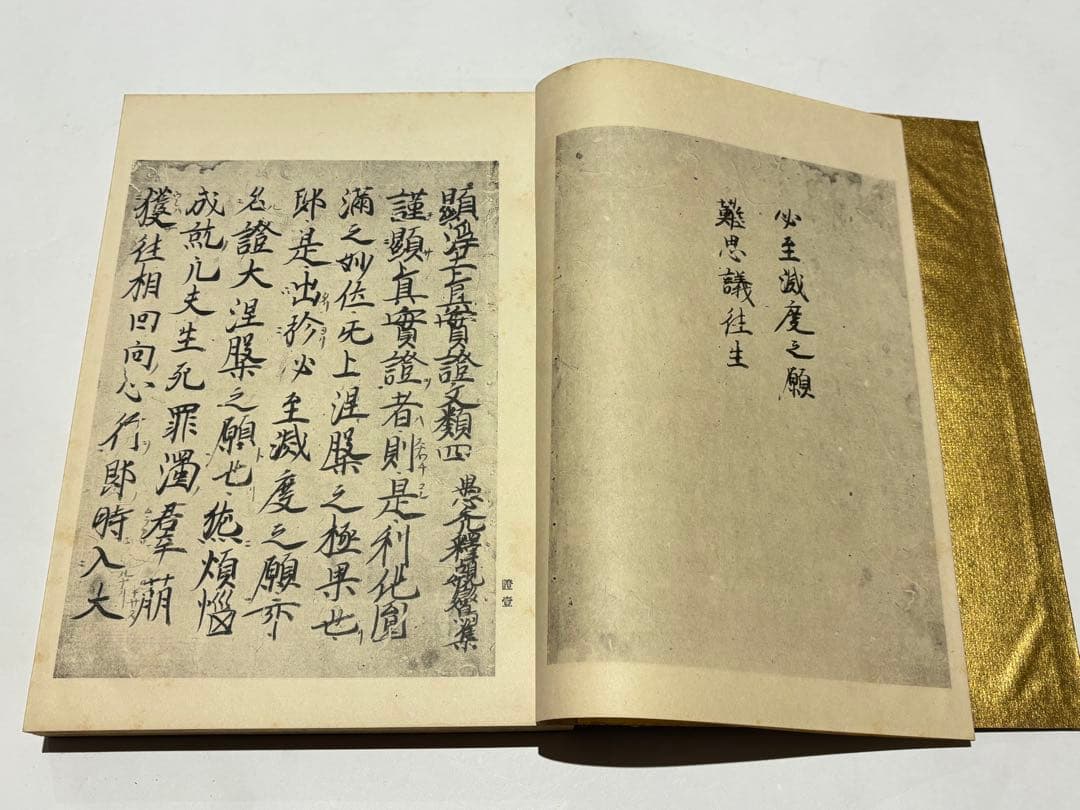 必至滅度之願
難思議往生
顯淨土真實證文類四 愚禿釋親鸞集
謹顯真實證者則是利他圓
滿之妙位无上涅槃之極果也
即是出於必至滅度之願亦
名證大涅槃之願也然煩惱
成就凡夫生死罪濁群萌
獲往相回向心行即時入大
證壹